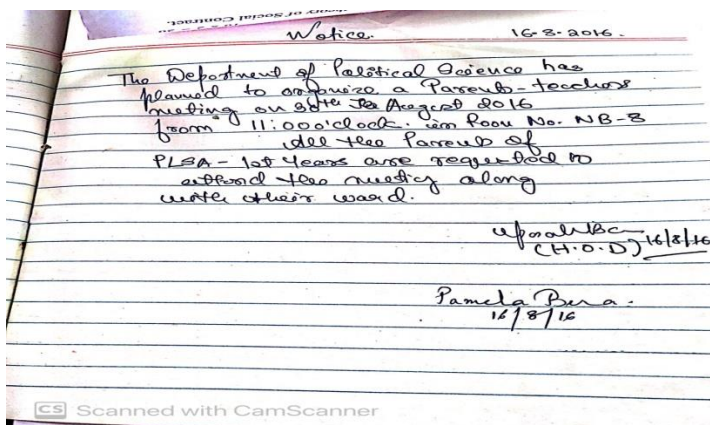 ory of Social Contract.
Notice.
16-8-2016.
The Department of Political Science has
planned to organize a Parents-teachers
meeting on 30th August 2016
from 11:00 o'clock. in Room No. NB-8
All the Parents of
PLSA - 1st Years are requested to
attend the meeting along
with their ward.
(H.O.D) 16/8/16
Pamela Bera.
16/8/16
CS Scanned with CamScanner